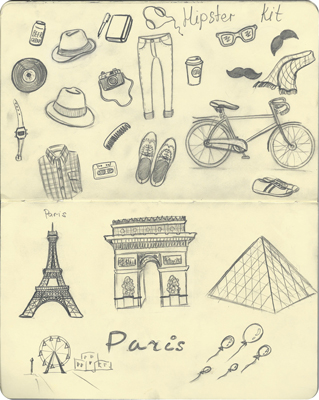 Hipster Kit
Paris
Paris